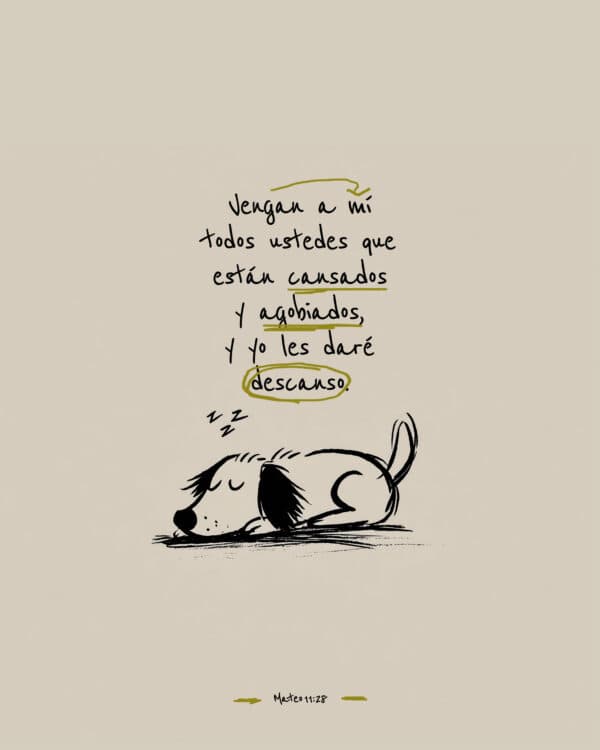 Vengan a mí
todos ustedes que
están cansados
y agobiados,
y yo les daré
descanso.
z z
z
Mateo 11:28